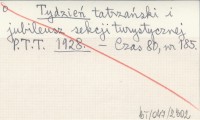 Tydzień tatrzański i
jubileusz sekcji turystycznej
P.T.T. 1928. — Czas 80, nr 185.